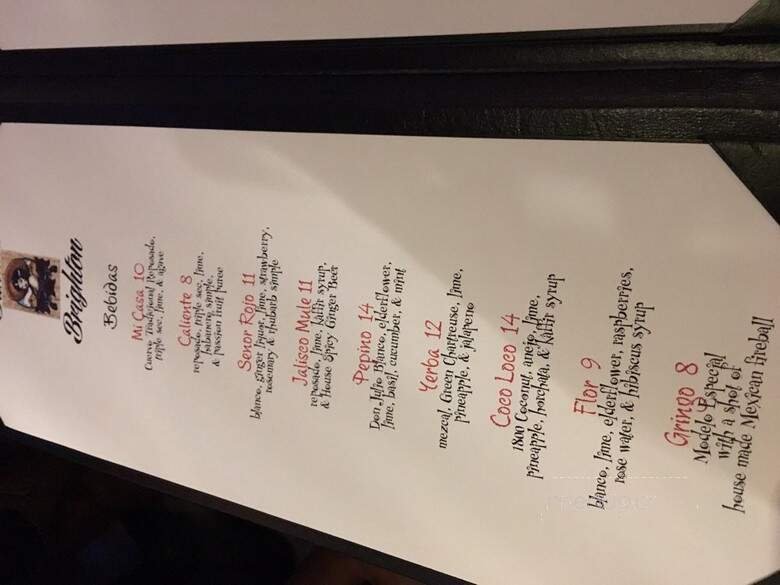 Brighton
Bebidas
Mi Casa 10
Cuervo Tradicional Reposado,
triple sec, lime, & agave
Caliente 8
reposado, triple sec, lime,
habanero, simple,
& passion fruit puree
Senor Rojo 11
blanco, ginger liquor, lime, strawberry,
rosemary & rhubarb simple
Jalisco Mule 11
reposado, lime, kaffir syrup,
& House Spicy Ginger Beer
Pepino 14
Don Julio Blanco, elderflower,
lime, basil, cucumber, & mint
Yerba 12
mezcal, Green Chartreuse, lime,
pineapple, & jalapeno
Coco Loco 14
1800 Coconut, anejo, lime,
pineapple, horchata, & kaffir syrup
Flor 9
blanco, lime, elderflower, raspberries,
rose water, & hibiscus syrup
Gringo 8
Modelo Especial
with a shot of
house made Mexican Fireball